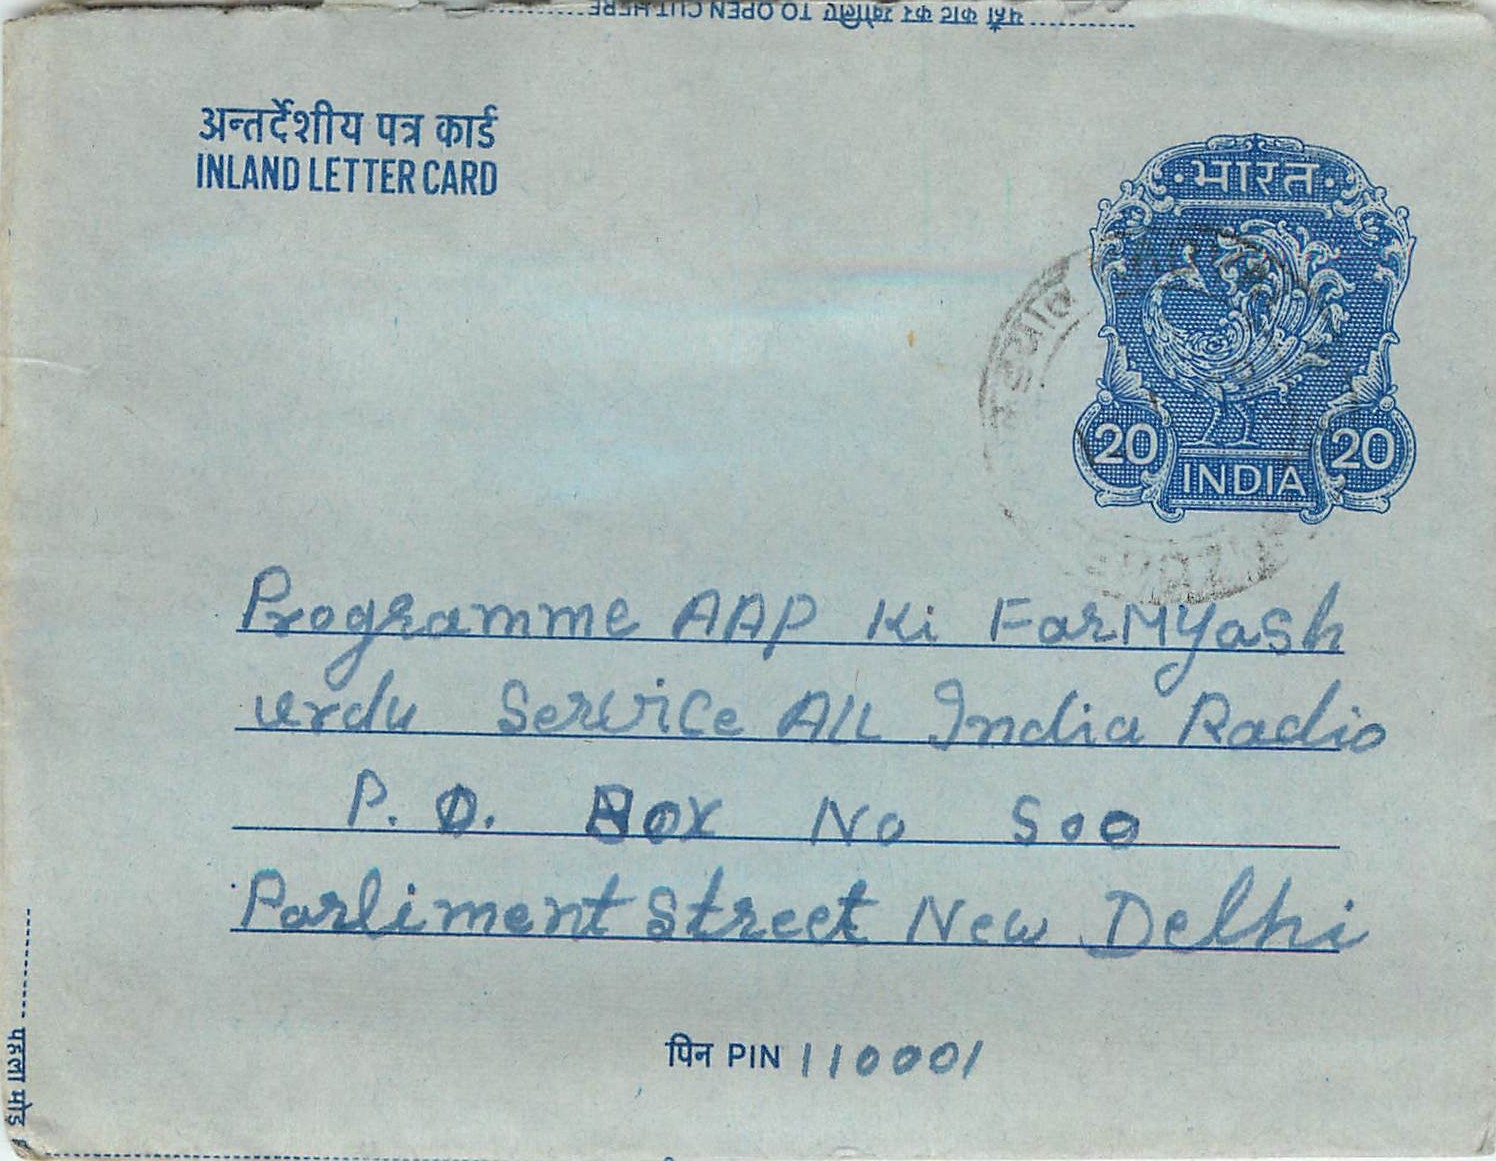 यहाँ काट कर खोलिए TO OPEN CUT HERE
अन्तर्देशीय पत्र कार्ड
INLAND LETTER CARD
भारत
20 20
INDIA
Programme AAP Ki FarMyash
urdu Service All India Radio
P.O. Box No 500
Parliment Street New Delhi
पिन PIN 110001
पहला मोड़